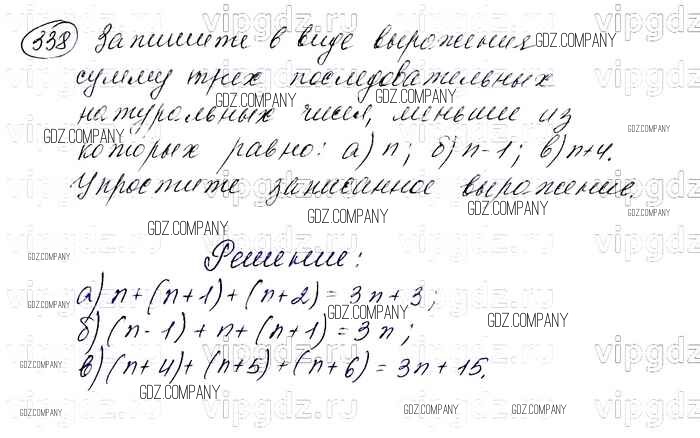 338 Запишите в виде выражения
сумму трех последовательных
натуральных чисел, меньшее из
которых равно: а) n; б) n-1; в) n+4.
Упростите записанное выражение.
Решение:
а) n+(n+1)+(n+2)=3n+3;
б) (n-1)+n+(n+1)=3n;
в) (n+4)+(n+5)+(n+6)=3n+15.